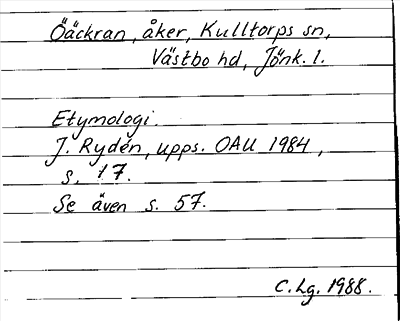 Öäckran, åker, Kulltorps sn,
Västbo hd, Jönk. l.
Etymologi.
J. Rydén, upps. OAU 1984,
s. 17.
Se även s. 57.
C. Lg. 1988.